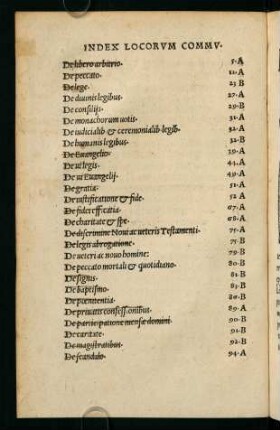 INDEX LOCORVM COMMV.
De libero arbitrio. 5.A
De peccato. 12.A
De lege. 23.B
De diuinis legibus. 27.A
De consilijs. 29.B
De monachorum uotis. 31.A
De iudicialib. & ceremonialib. legib. 32.A
De humanis legibus. 32.B
De Euangelio. 39.A
De ui legis. 44.A
De ui Euangelij. 49.A
De gratia. 51.A
De iustificatione & fide. 52.A
De fidei efficatia. 67.A
De charitate & spe. 68.A
De discrimine Noui ac ueteris Testamenti. 75.A
De legis abrogatione. 75.B
De ueteri ac nouo homine. 79.B
De peccato mortali & quotidiano. 80.B
De signis. 81.B
De baptismo. 83.B
De poenitentia. 86.B
De priuatis confessionibus. 89.A
De participatione mensæ domini. 90.B
De caritate. 91.B
De magistratibus. 92.B
De scandalo. 94.A